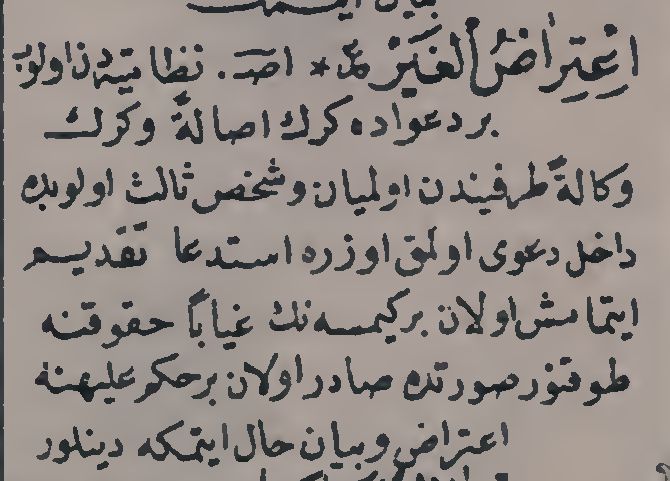 بيان ايتمك
اِعْتِراضُ الغَيْرْ عـ * اصـ . نظاميه‌دن اولوب
بر دعواده كرك اصالةً وكرك
وكالةً طرفيندن اولميان وشخص ثالث اولوبده
داخل دعوى اولمق اوزره استدعا تقديم
ايتمامش اولان بر كيمسه نك غياباً حقوقنه
طوقنور صورتده صادر اولان بر حكم عليهنه
اعتراض وبيان حال ايتمكه دينلور